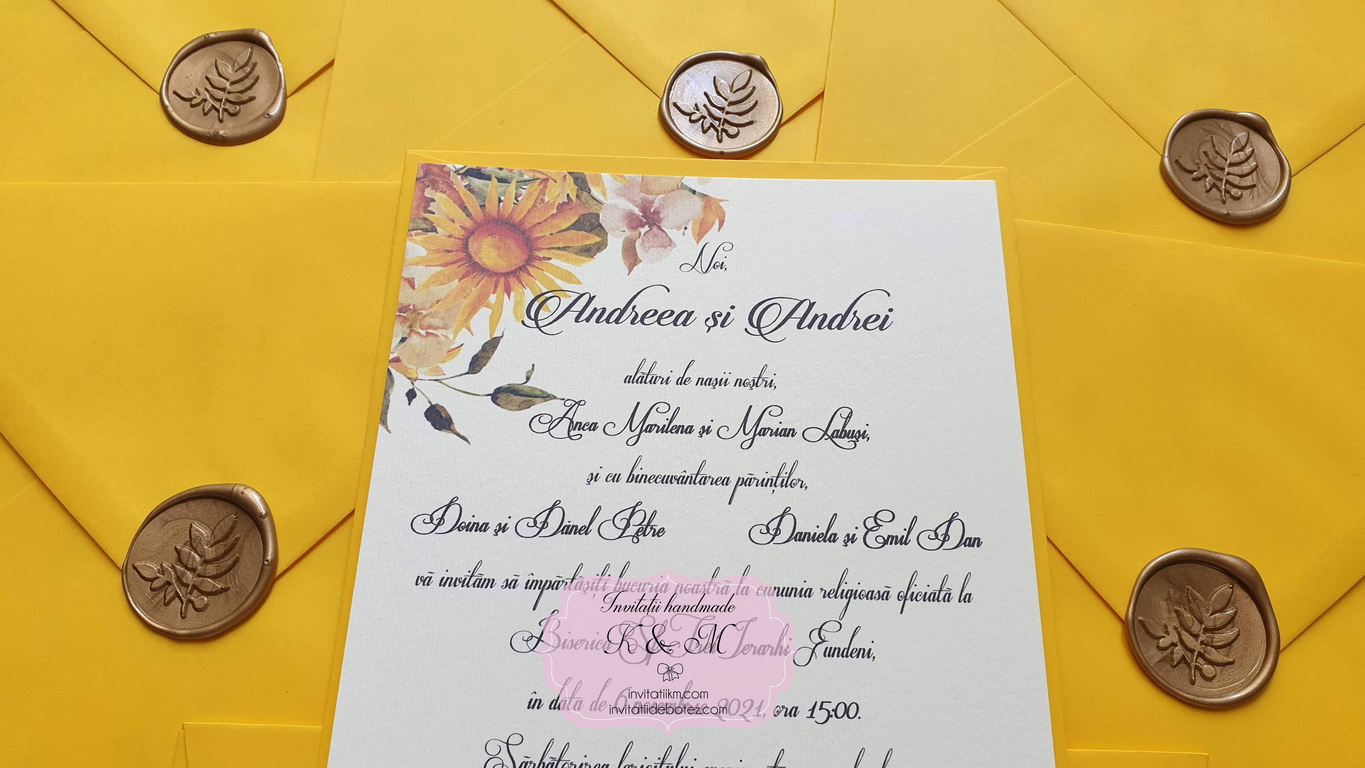 Noi,
Andreea și Andrei
alături de nașii noștri,
Anca Marilena și Marian Labuși,
și cu binecuvântarea părinților,
Doina și Dănel Petre Daniela și Emil Dan
vă invităm să împărtășiți bucuria noastră la cununia religioasă oficiată la
Biserica Sf. Trei Ierarhi Fundeni,
în data de 6 2021, ora 15:00.
Invitații handmade
K & M
invitatiikm.com
invitatiidebotez.com
Sărbătorirea fericitului